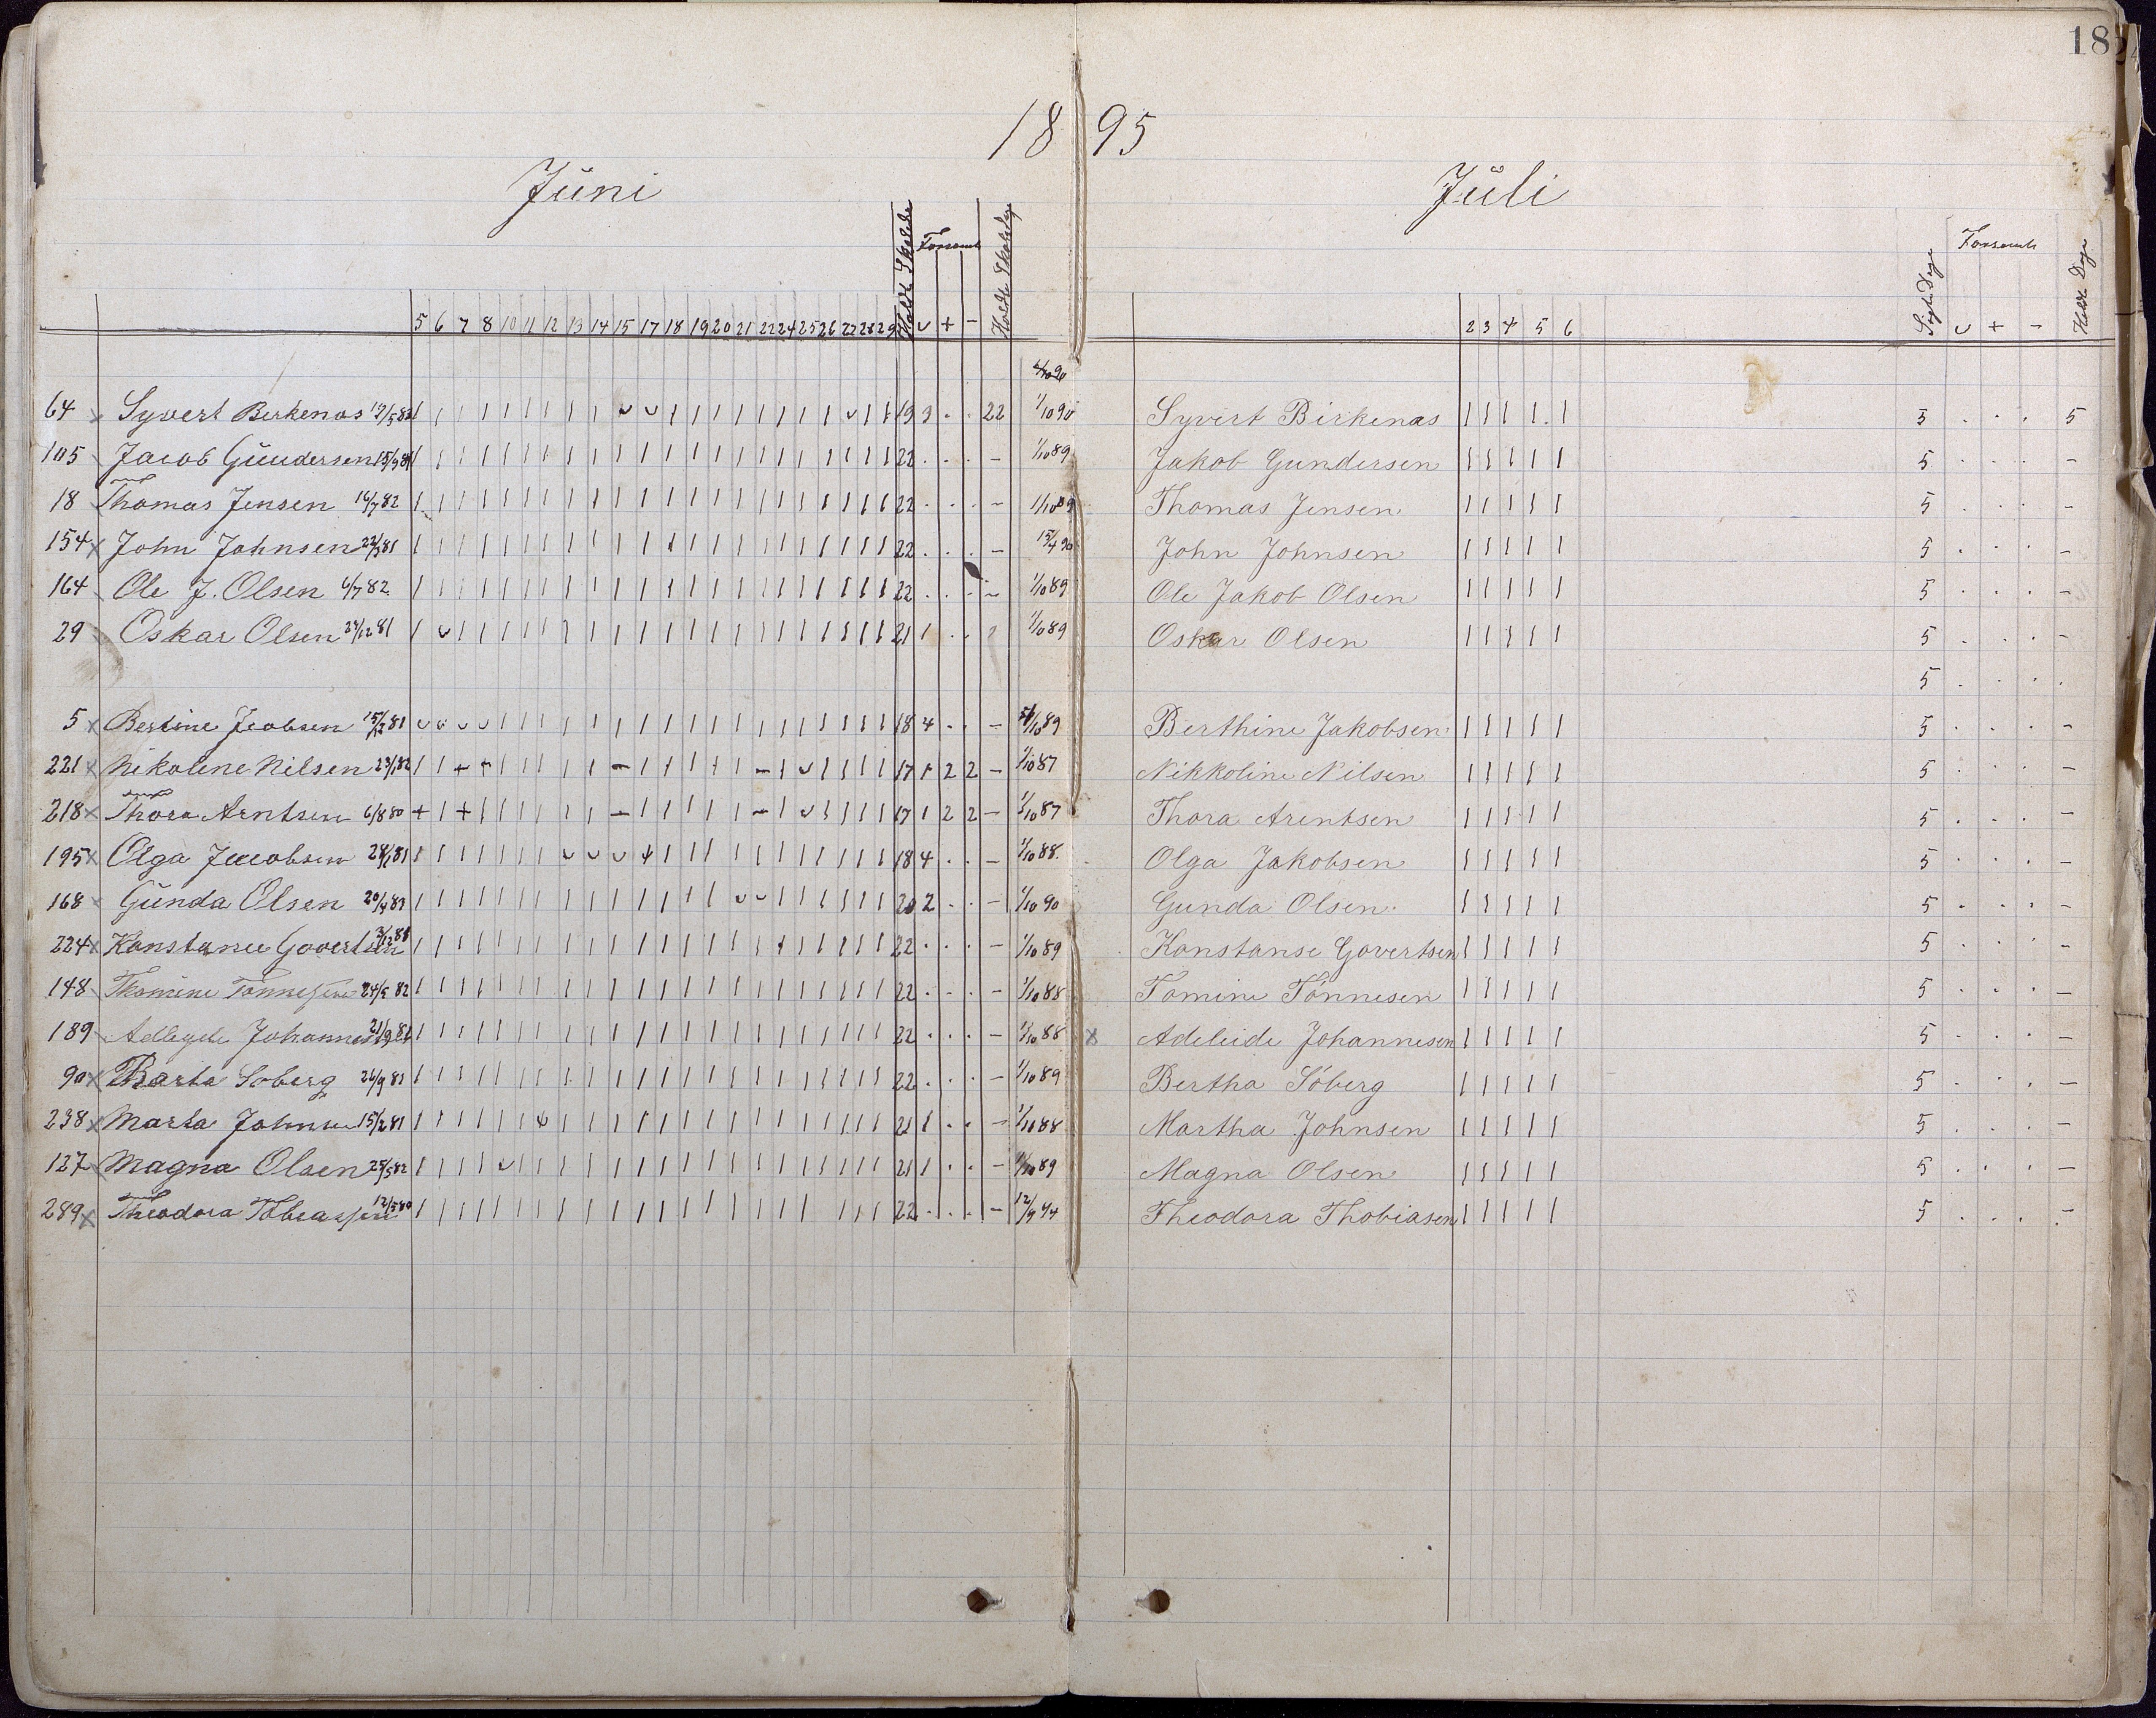 18
18 95
Jüni
Forsømt
Holdte Skoledage
5 6 7 8 10 11 12 13 14 15 17 18 19 20 21 22 24 25 26 27 28 29 ᴗ + -
64 x Syvert Birkenas 19/5 82 19 3 . . 22 1/10 90
105 Jacob Gundersen 15/9 81 22 . . . - 1/10 89
18 Thomas Jensen 16/7 82 22 . . . - 1/10 89
154 x John Johnsen 22/ 81 22 . . . - 15/4 90
164 Ole J. Olsen 6/7 82 22 . . - - 1/10 89
29 Oskar Olsen 24/12 81 21 1 . . 1/10 89
5 x Bertine Jacobsen 15/12 81 18 4 . . - 1/10 89
221 x Nikoline Nilsen 23/1 82 17 1 2 2 - 1/10 87
218 x Thora Arntsen 6/8 80 17 1 2 2 - 1/10 87
195 x Olga Jacobsen 28/1 81 18 4 . . - 1/10 88
168 x Günda Olsen 20/4 83 20 2 . . - 1/10 90
224 x Konstance Govertsen 3/12 81 22 . . . - 1/10 89
148 Thomine Tønnesen 24/5 82 22 . . . - 1/10 88
189 Adleyde Johannes 21/9 81 22 . . . - 1/10 88
90 x Barta Soberg 26/9 82 22 . . . - 1/10 89
238 x Marta Johnsen 15/2 81 21 1 . . - 1/10 88
127 x Magna Olsen 25/5 82 21 1 . . - 1/10 89
289 x Theodora Tobiassen 12/5 80 22 . . . - 12/9 94
Jüli
Forsømt
Søgte Dage
Holdte Dage
2 3 4 5 6 ᴗ + -
Syvert Birkenas | | | | | 5 . . . 5
Jakob Gundersen | | | | | 5 . . . -
Thomas Jensen | | | | | 5 . . . -
John Johnsen | | | | | 5 . . . -
Ole Jakob Olsen | | | | | 5 . . . -
Oskar Olsen | | | | | 5 . . . -
5 . . . .
Berthine Jakobsen | | | | | 5 . . . -
Nikkoline Nilsen | | | | | 5 . . . -
Thora Arentsen | | | | | 5 . . . -
Olga Jakobsen | | | | | 5 . . . -
Gunda Olsen | | | | | 5 . . . -
Konstanse Govertsen | | | | | 5 . . . -
Tomine Tönnesen | | | | | 5 . . . -
x Adeleide Johannesen | | | | | 5 . . .
Bertha Söberg | | | | | 5 . . . -
Martha Johnsen | | | | | 5 . . . -
Magna Olsen | | | | | 5 . . . -
Theodora Thobiasen | | | | | 5 . . . -